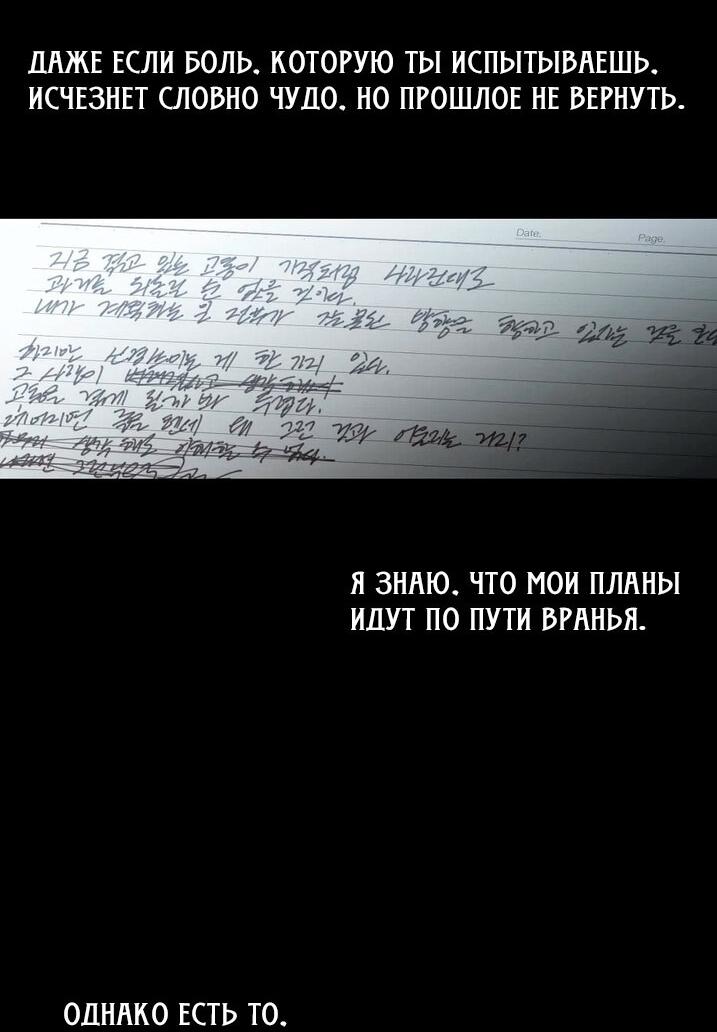 ДАЖЕ ЕСЛИ БОЛЬ, КОТОРУЮ ТЫ ИСПЫТЫВАЕШЬ,
ИСЧЕЗНЕТ СЛОВНО ЧУДО, НО ПРОШЛОЕ НЕ ВЕРНУТЬ.
Date.
Page.
지금 겪고 있는 고통이 기적처럼 사라진대도
과거를 되돌릴 순 없을 것이다.
내가 계획하는 일 전부가 잘못된 방향을 향하고 있다는 것을
하지만 신경쓰이는 게 한 가지 있다.
그 사람이
고통을 겪게 될까 봐 두렵다.
왜 그런 것과
Я ЗНАЮ, ЧТО МОИ ПЛАНЫ
ИДУТ ПО ПУТИ ВРАНЬЯ.
ОДНАКО ЕСТЬ ТО,